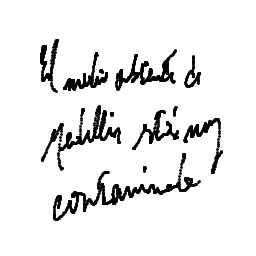 El medio ambiente de
Medellin está muy
contaminado